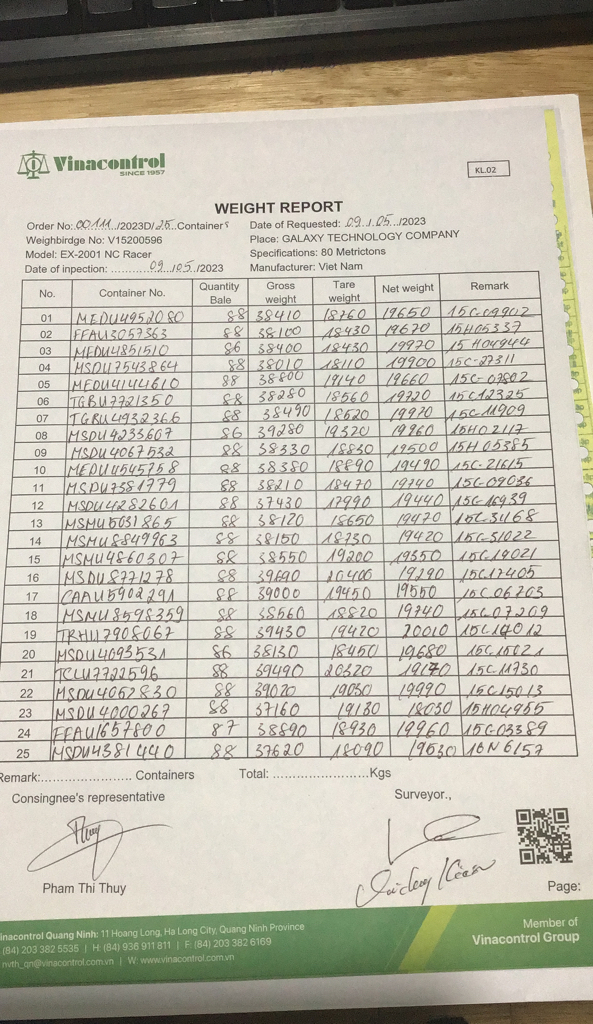 Vinacontrol
SINCE 1957
KL.02
WEIGHT REPORT
Order No: 00111 /2023D/ 25 Containers Date of Requested: 09 / 05 /2023
Weighbirdge No: V15200596 Place: GALAXY TECHNOLOGY COMPANY
Model: EX-2001 NC Racer Specifications: 80 Metrictons
Date of inpection: 09 / 05 /2023 Manufacturer: Viet Nam
No. Container No. Quantity Bale Gross weight Tare weight Net weight Remark
01 MEDU4952080 88 38410 18760 19650 15C-09902
02 FFAU3057363 88 38100 18430 19670 15H05337
03 MEDU4851510 86 38400 18430 19970 15H04944
04 MSDU7543864 88 38010 18110 19900 15C-27311
05 MEDU4144610 88 38800 19140 19660 15C-07802
06 TGBU7721350 88 38280 18560 19720 15C12325
07 TGBU4932366 88 38490 18520 19970 15C-11909
08 MSDU4233607 86 39280 19320 19960 15H02117
09 MSDU4067532 88 38330 18830 19500 15H05385
10 MEDU4545758 88 38380 18890 19490 15C-21615
11 MSDU7381779 88 38210 18470 19740 15C-09036
12 MSDU4282601 88 37430 17990 19440 15C-16939
13 MSMU5031865 88 38120 18650 19470 15C-3168
14 MSMU8849963 88 38150 18730 19420 15C-31022
15 MSMU4860307 88 38550 19200 19350 15C19021
16 MSDU8771278 88 39690 20400 19290 15C17405
17 CAAU5902291 88 39000 19450 19550 15C06203
18 MSMU8598359 88 38560 18820 19740 15C07209
19 TRHU7908067 88 39430 19420 20010 15C14012
20 MSDU4093531 86 38130 18450 19680 15C15021
21 TCLU7722596 88 39490 20320 19170 15C-11730
22 MSDU4052830 88 39020 19030 19990 15C15013
23 MSDU4000267 88 37160 19130 18030 15H04955
24 FFAU1657800 87 38890 18930 19960 15G03389
25 MSDU4381440 88 37620 18090 19530 16N6157
Remark: Containers Total: Kgs
Consingnee's representative Surveyor.,
Pham Thi Thuy
Page:
Vinacontrol Quang Ninh: 11 Hoang Long, Ha Long City, Quang Ninh Province
(84) 203 382 5535 | H: (84) 936 911 811 | F: (84) 203 382 6169
nvth_qn@vinacontrol.com.vn | W: www.vinacontrol.com.vn
Member of
Vinacontrol Group